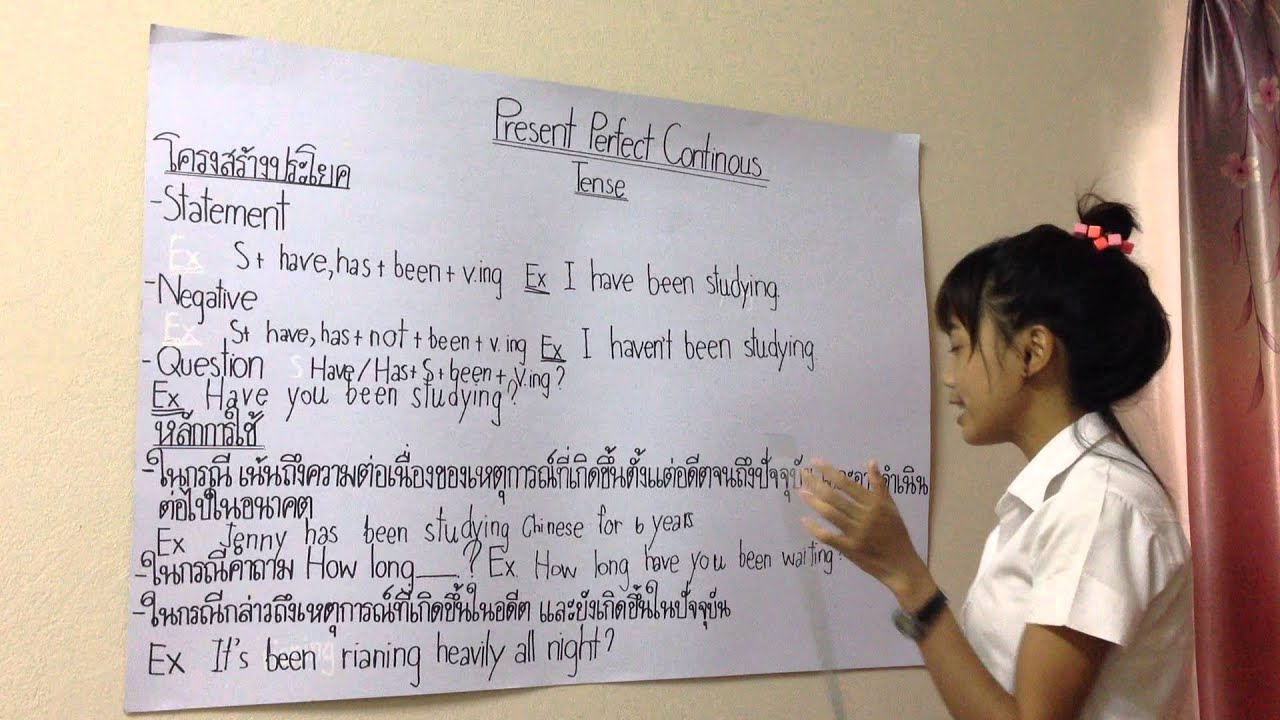 Present Perfect Continous
Tense
โครงสร้างประโยค
-Statement
Ex S+ have, has + been + v.ing Ex I have been studying.
-Negative
Ex S+ have, has + not + been + v. ing Ex I haven't been studying.
-Question Have / Has + S + been + v.ing ?
Ex Have you been studying?
หลักการใช้
-ในกรณี เน้นถึงความต่อเนื่องของเหตุการณ์ที่เกิดขึ้นตั้งแต่อดีตจนถึงปัจจุบัน ดำเนิน
ต่อไปในอนาคต
Ex Jenny has been studying Chinese for 6 years
-ในกรณีคำถาม How long___? Ex. How long have you been waiting?
-ในกรณีกล่าวถึงเหตุการณ์ที่เกิดขึ้นในอดีต และยังเกิดขึ้นในปัจจุบัน
Ex It's been rianing heavily all night?